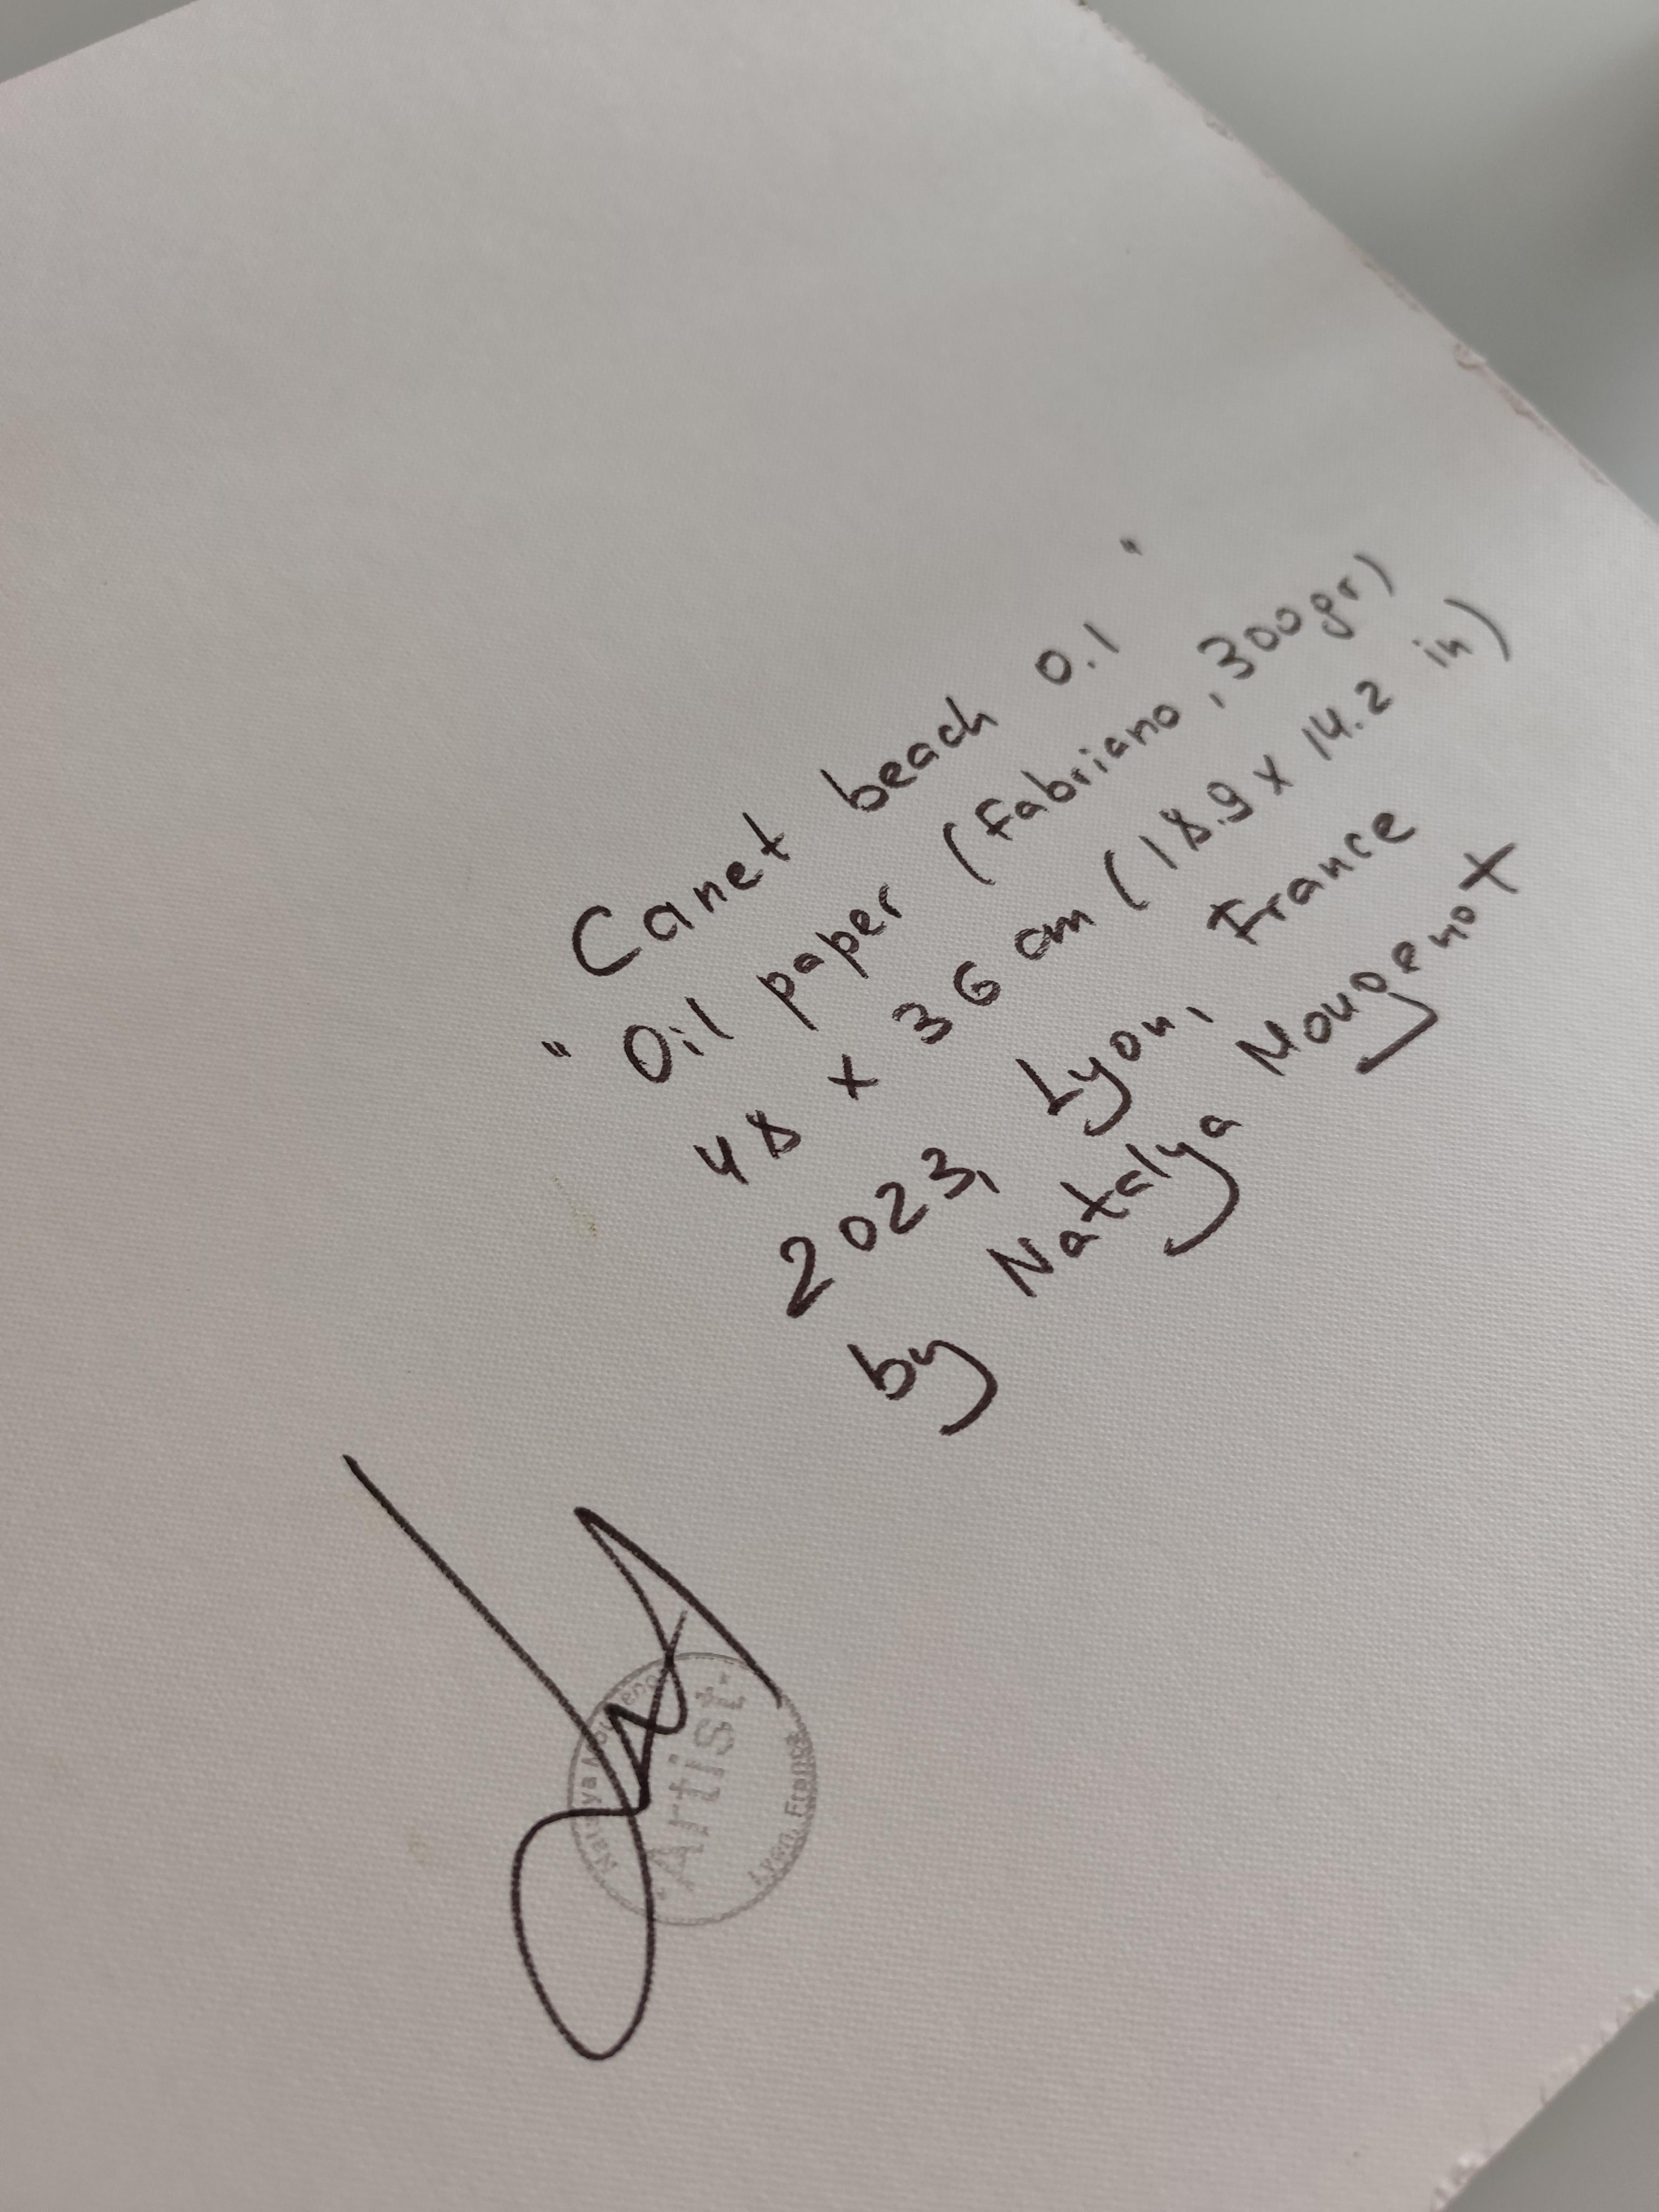 "Canet beach 0.1"
Oil paper (Fabriano, 300gr)
48 x 36 cm (18.9 x 14.2 in)
2023, Lyon, France
by Natalya Mougenot
Natalya Mougenot
·Artist·
Lyon, France